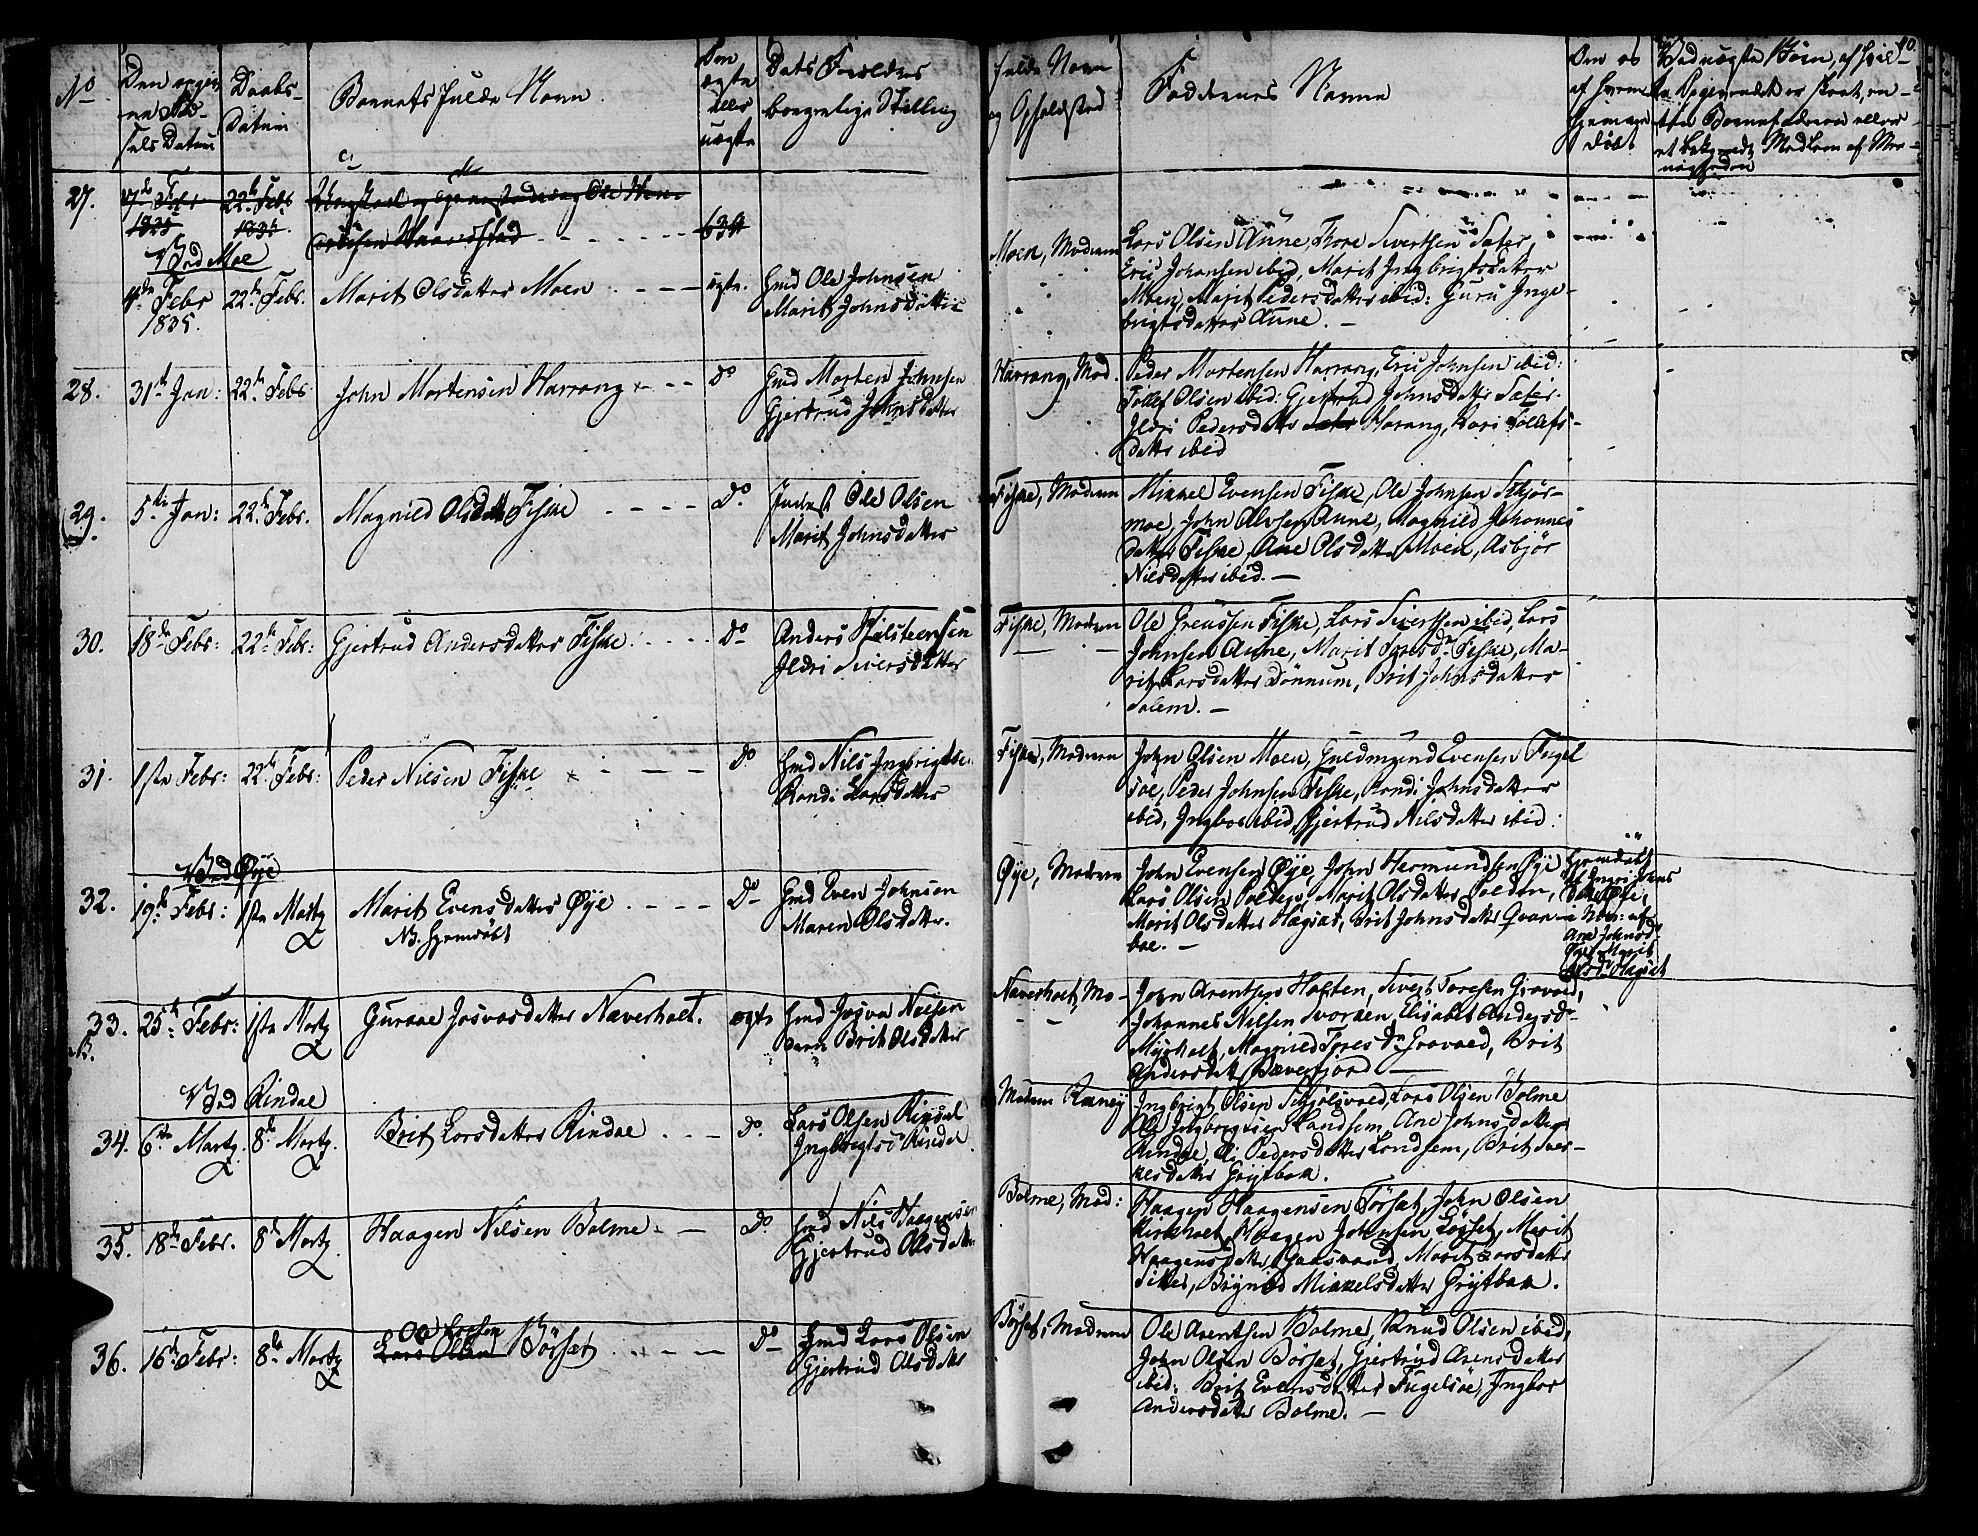 No
Den opgiv
ne Fød-
sels Datum
Daabs-
Datum
Barnets fulde Navn.
Om
ægte
eller
uægte
Dets Forældres
borgerlige Stilling
fulde Navn
og Opholdsted
Faddernes Navne
Om og
af hvem
hjemme
døbt
Ved uægte Børn, af hvil-
et bekjendt Medlem af Me-
nigheden
27.
22de Febr
1835.
Ole
Ved Moe
4de Febr
1835.
22de Febr.
Marit Olsdatter Moen
ægte.
Gmd Ole Johnsen
Marit Johnsdatter
Moen, Modum
Lars Olsen Aune, Thore Sivertsen Sæter,
Eric Johansen ibid, Marit Ingbrigtsdatter
Moen, Marit Pedersdatter ibid: Guru Inge-
brigtsdatter Aune. -
28.
31te Jan:
22de Febr
John Mortensen Harrang
Do
Gmd Morten Johnsen
Gjertrud Johnsdatter
Harrang, Mod.
Peder Mortensen Harrang, Eric Johnsen ibid:
Tollef Olsen ibid: Gjertrud Johnsdatter Sæter.
Ildri Pedersdatter Harang, Kari Tollefs-
datter ibid
29.
5te Jan:
22de Febr.
Magnild Olsdatter Fiske
Do.
Inderst Ole Olsen
Marit Johnsdatter
Fiske, Modum
Mikkel Evensen Fiske, Ole Johnsen Skjør-
moe, John Olsen Aune, Magnild Johannes
datter Fiske, Ane Olsdatter Moen, Asbjør
Nilsdatter ibid. -
30.
18de Febr:
22de Febr:
Gjertrud Andersdatter Fiske.
Do
Anders Halsteensen
Ildri Siversdatter
Fiske, Modum
Ole Greussen Fiske, Lars Sivertsen ibid, Lars
Johnsen Aune, Marit Toresdr Fiske, Ma-
rit Larsdatter Dønnum, Brit Johnsdatter
Salem. -
31.
1ste Febr:
22de Febr:
Peder Nilsen Fiske
Do
Gmd Nils Ingbrigtse
Randi Larsdatter
Fiske, Modum
John Olsen Moen, Guldmund Evensen Fugel
søe, Peder Johnsen Fiske, Randi Johnsdatter
ibid, Ingbor ibid, Gjertrud Nilsdatter ibid:
Ved Øye
32.
19de Febr:
1ste Martz
Marit Evensdatter Øye
NB. hjemdøbt
Do
Gmd Even Johnsen
Maren Olsdatter.
Øye, Modum
John Evensen Øye, John Hermundsen Øye
Lars Olsen Polden, Marit Olsdatter Polden,
Marit Olsdatter Hagsæt, Brit Johnsdatter Qvan-
bae. -
Hjemdøbt
af Ingri Johns
datter Øye,
Ane Johnsdr
Øye, Marit
Olsdr Hagsæt
33.
NB.
25de Febr:
1ste Martz
Guroae Josvasdatter Næverholt.
ægte
Gmd Josva Nilsen
Brit Olsdatter
Næverholt, Mo-
John Arentsen Holten, Sivert Toresen Gravaed,
Johannes Nilsen Svorken, Elisabet Andersdr
Myrholt, Magnild Toresdr Gravaed, Brit
Andersdatter Bæverfjord
Ved Rindal
34.
6te Martz.
8de Martz.
Brit Larsdatter Rindal
Do.
Lars Olsen Rindal
Modum Raney
Ingbrigt Olsen Skjølsvold, Lars Olsen Bolme
Ole Ingbrigtsen Landsem, Ane Johnsdatter
Rindal, Pedersdatter Landsem, Brit Sver-
kesdatter Grytbak.
35.
18de Febr.
8de Martz
Haagen Nilsen Bolme
Do
Gmd Nils Haagensen
Gjertrud Olsdatter
Bolme, Mod:
Haagen Haagensen Tørset, John Olsen
Kirkholt, Haagen Johnsen Løset, Marit
Haagensdatter Gaasvand, Marit Larsdatter
Sitter, Brynild Mikkelsdatter Grytbak.
36.
16de Febr:
8de Martz
Ole Larsen
Lars Olsen Børset
Do
Gmd Lars Olsen
Gjertrud Olsdatter
Børset, Modum
Ole Arentsen Bolme, Knud Olsen ibid,
John Olsen Børset, Gjertrud Arensdatter
ibid: Brit Evensdatter Fugelsøe, Ingbor
Andersdatter Bolme. -